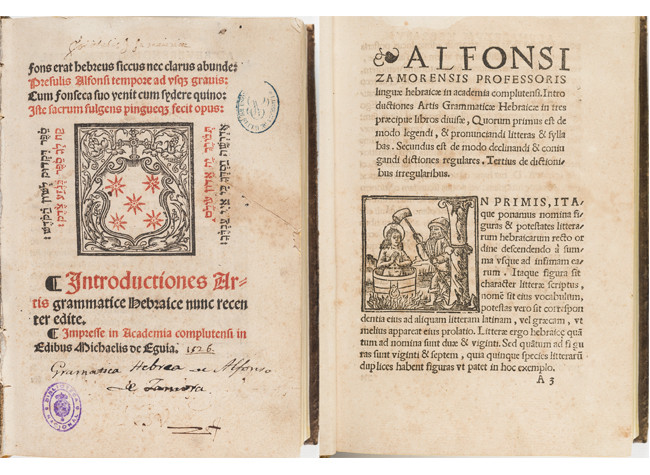 Fons erat hebreus siccus nec clarus abunde:
Presulis Alfonsi tempore ad vsqȝ grauis:
Cum Fonseca suo venit cum sydere quino:
Iste sacrum fulgens pingueqȝ fecit opus:
¶ Introductiones Ar-
tis grammatice Hebraice nunc recen
ter edite.
¶ Impresse in Academia complutensi in
Edibus Michaelis de Eguia. 1526.
Gramatica Hebrea de Alfonso
de Zamora
ALFONSI
ZAMORENSIS PROFESSORIS
linguæ hebraicæ in academia complutensi. Intro
ductiones Artis Grammaticæ Hebraicæ in tres
præcipue libros diuisæ, Quorum primus est de
modo legendi, & pronunciandi litteras & sylla
bas. Secundus est de modo declinandi & coniu
gandi dictiones regulares. Tertius de dictioni-
bus irregularibus.
IN PRIMIS, ITA-
que ponamus nomina fi
guras & potestates littera-
rum hebraicarum recto or
dine descendendo à sum-
ma vsque ad infimam ea-
rum. Itaque figura sit
character litteræ scriptus,
nomē sit eius vocabulum,
potestas vero sit correspon
dentia eius ad aliquam litteram latinam, vel græcam, vt
melius appareat eius prolatio. Litteræ ergo hebraicæ quā
tum ad nomina sunt duæ & viginti. Sed quātum ad figu
ras sunt viginti & septem, quia quinque species litterarū
duplices habent figuras vt patet in hoc exemplo.
A 3